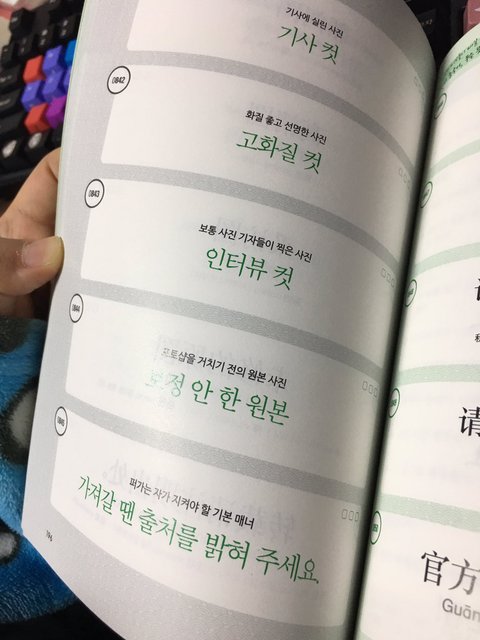 기사에 실린 사진
기사 컷
0842
화질 좋고 선명한 사진
고화질 컷
0843
보통 사진 기자들이 찍은 사진
인터뷰 컷
0844
포토샵을 거치기 전의 원본 사진
보정 안 한 원본
0845
퍼가는 자가 지켜야 할 기본 매너
가져갈 땐 출처를 밝혀 주세요.
请
官方
Guān